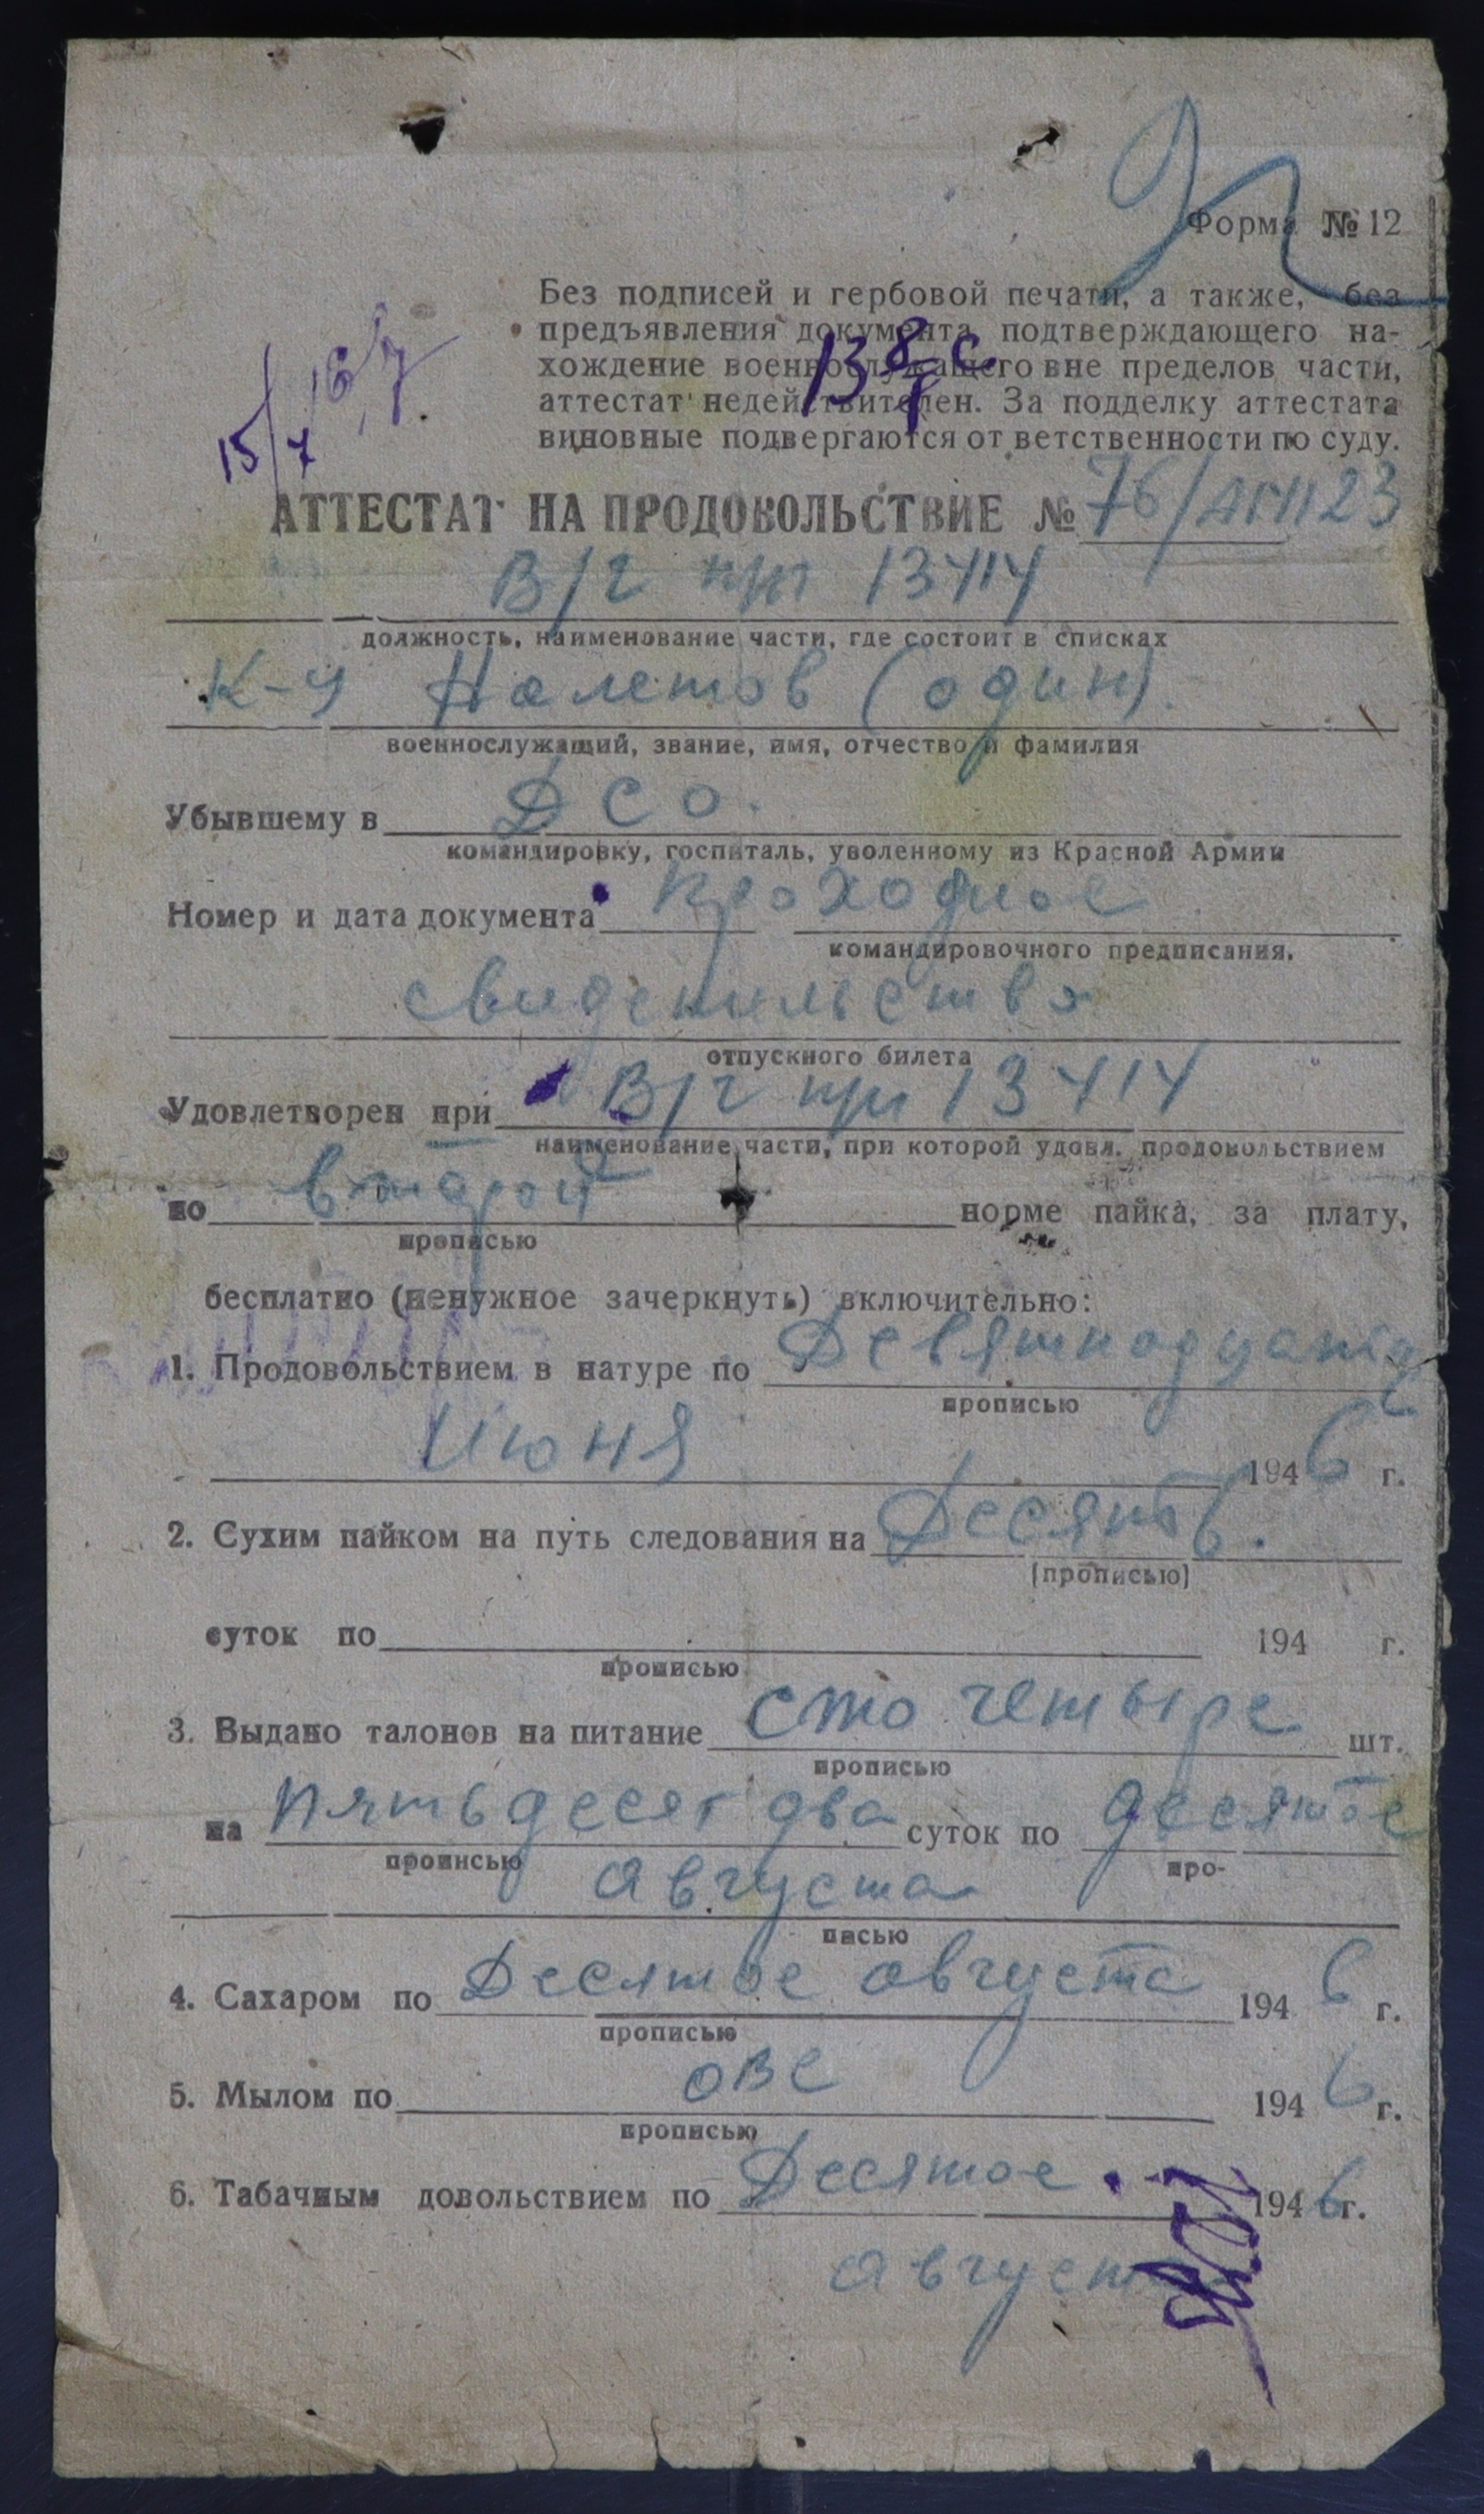 Форма № 12
Без подписей и гербовой печати, а также, без
предъявления документа, подтверждающего на-
хождение военнослужащего вне пределов части,
аттестат недействителен. За подделку аттестата
виновные подвергаются от ветственности по суду.
15/7
АТТЕСТАТ НА ПРОДОВОЛЬСТВИЕ № 76/
В/ч п/п 13414
должность, наименование части, где состоит в списках
К-у Налетов (один).
военнослужащий, звание, имя, отчество и фамилия
Убывшему в ДСО.
командировку, госпиталь, уволенному из Красной Армии
Номер и дата документа Проходное
командировочного предписания,
свидетельство
отпускного билета
Удовлетворен при В/ч п/п 13414
наименование части, при которой удовл. продовольствием
по второй норме пайка, за плату,
прописью
бесплатно (ненужное зачеркнуть) включительно:
1. Продовольствием в натуре по Девятнадцатое
прописью
Июня 1946 г.
2. Сухим пайком на путь следования на Десять.
(прописью)
суток по 194 г.
прописью
3. Выдано талонов на питание сто четыре шт.
прописью
на пятьдесят два суток по десятое
прописью про-
Августа
писью
4. Сахаром по Десятое августа 1946 г.
прописью
5. Мылом по 1946 г.
прописью
6. Табачным довольствием по Десятое 1946 г.
августа